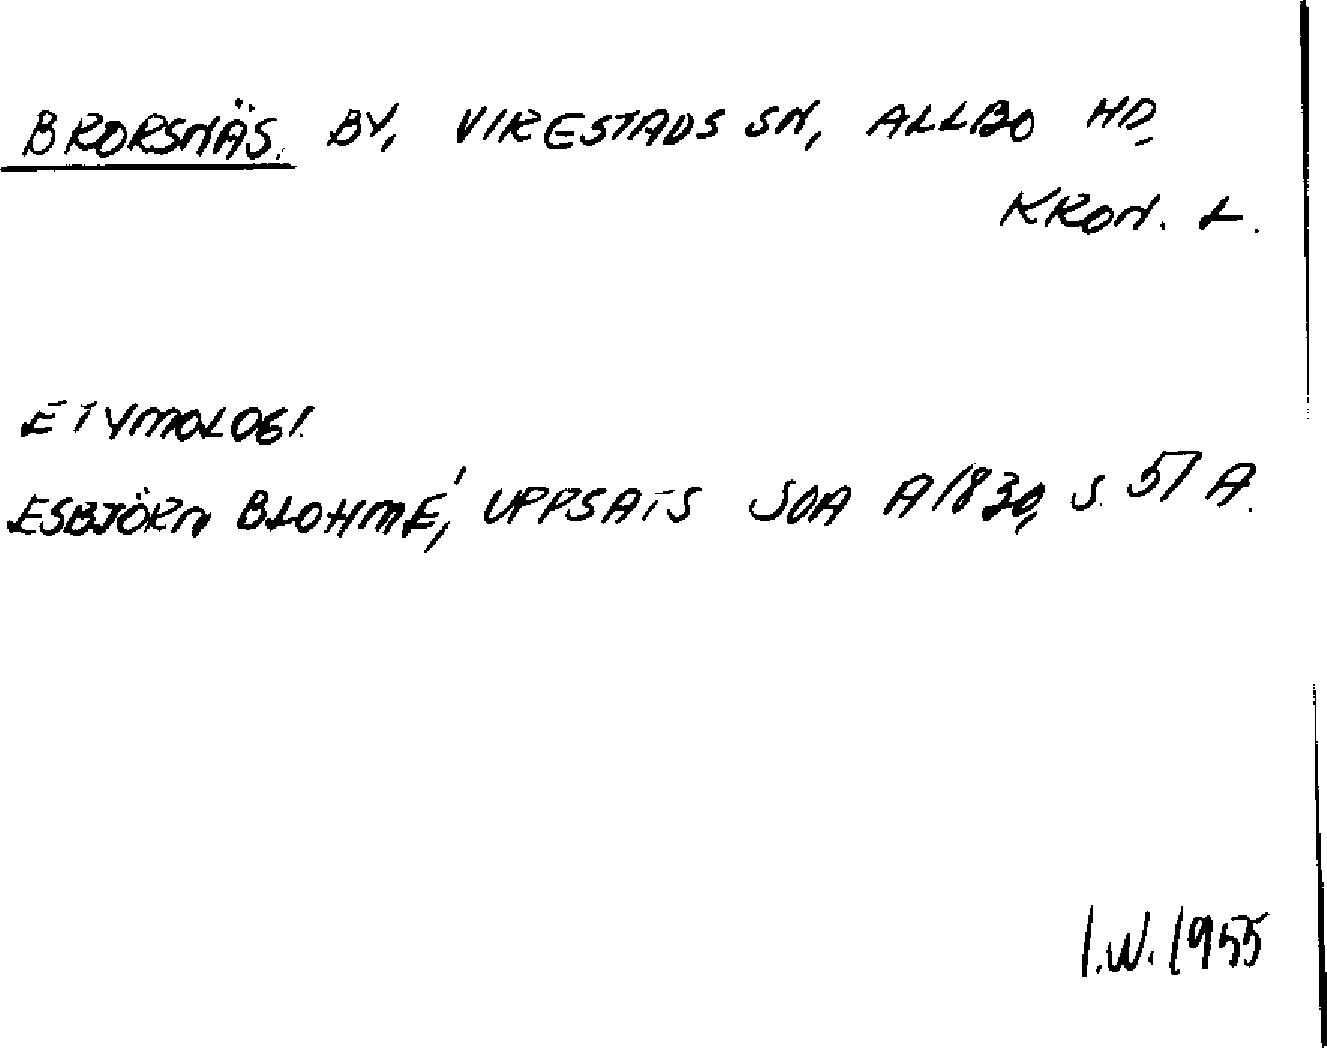 BRORSNÄS. BY, VIRESTADS SN, ALLBO HD,
KRON. L.
ETYMOLOGI.
ESBJÖRN BLOHMÉ, UPPSATS SOA A1830, S. 51 A.
I.W. 1955